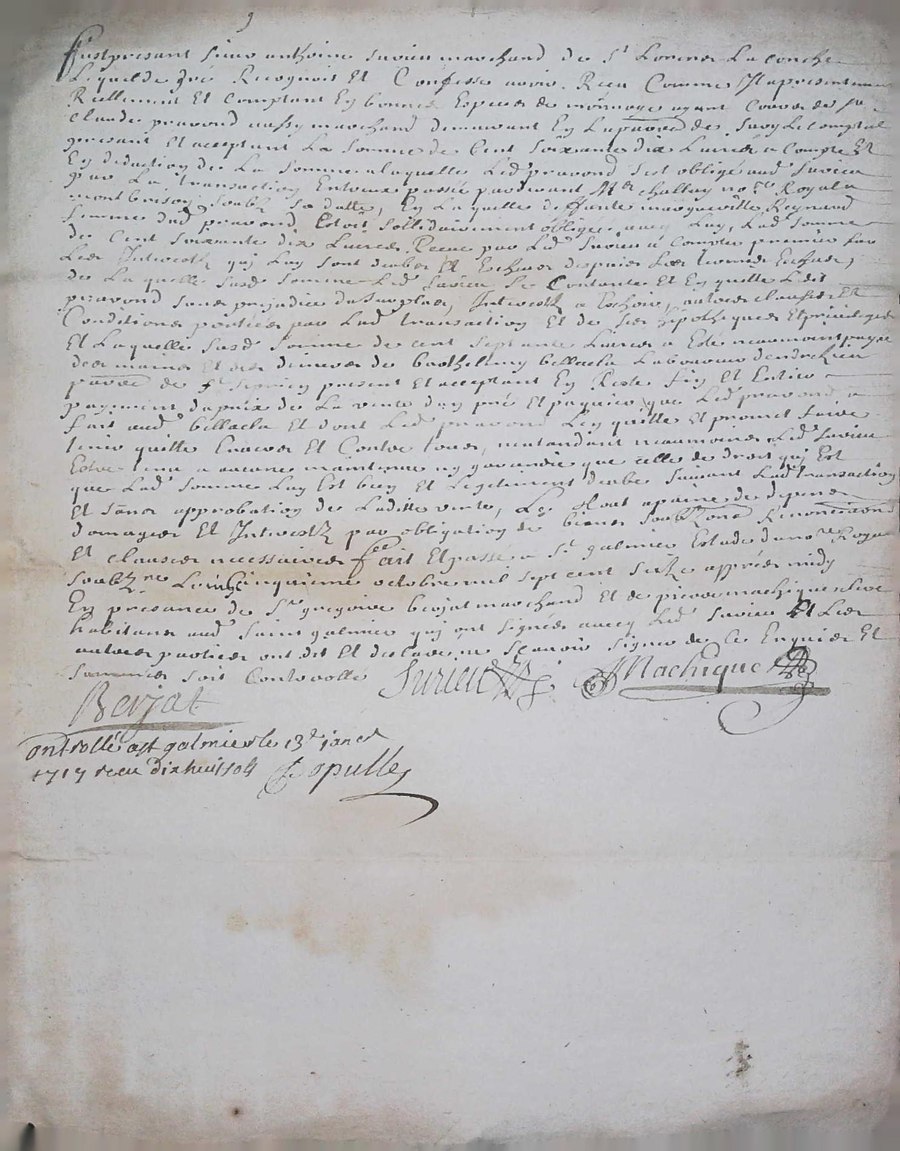 fust presant sieur anthoine Surieu marchand de St
Lequel de gré Recognoit Et Confesse avoir Receu Comme
Reellement Et Comptant En bonnes Especes de monnoye ayant Cours de Sr
Claude pravond aussy marchand demeurant En La parroisse de Sury Le comptal
presant Et acceptant La Somme de Cent Soixante dix Livres a Compte Et
En deduction de La Somme a laquelle Led pravond S'est obligé aud Surieu
par La transaction Entreux passée pardevant Me challay nore Royal a
montbrison Soubz Sa datte, En Laquelle margueritte Reynaud
femme dud pravond Estoit Sollidairement obligée avec Luy, Lad Somme
de Cent Soixante dix Livres Receue par Led Surieu a Compte premier
Les Interestz quj Luy sont deubz Et Escheus despuis
de Laquelle susd Somme Led Surieu Se Contante Et En quitte Ledit
pravond sans prejudice du Surplus, Interestz a Eschoir, autres clauses Et
Conditions portées par Lad transaction Et de Ses hipotheques Et privileges
Et Laquelle susd Somme de cent septante Livres a Esté
des mains Et des deniers de barthellemy billache Laboureur
parroisse de St present Et acceptant En Reste fin Et Entier
payement du prix de La vente d'un pré Et que Led pravond a
fait aud billache Et dont Led pravond L'en quitte Et promet faire
tenir quitte Envers Et Contre tous, neantmoins Led Surieu
Estre tenu a aucune maintenue ny garandie que celle de droit quj Est
que Lad Somme Luy Est bien Et Legitimement deube Suivant Lad transaction
Et Sans approbation de Laditte vente, a paine de depens
domages Et Interestz par obligation de biens Soubz Renonceans
Et clauses necessaires fait Et passé a St galmier Estude du nore Royal
Soubzné Le vingt cinquieme octobre mil sept cent Seize apprés midy
En presance de Sr gregoire berjat marchand Et de pierre machique
habitans aud Saint galmier quj ont signés avecq Led Surieu Et Les
autres parties ont dit Et declaré ne Scavoir signer de Ce Enquis Et
Sommées soit Controolle
Surieu
Machique
Berjat
ontrollé a St galmier le 13e janer
1717 receu dix huit sols Copulle